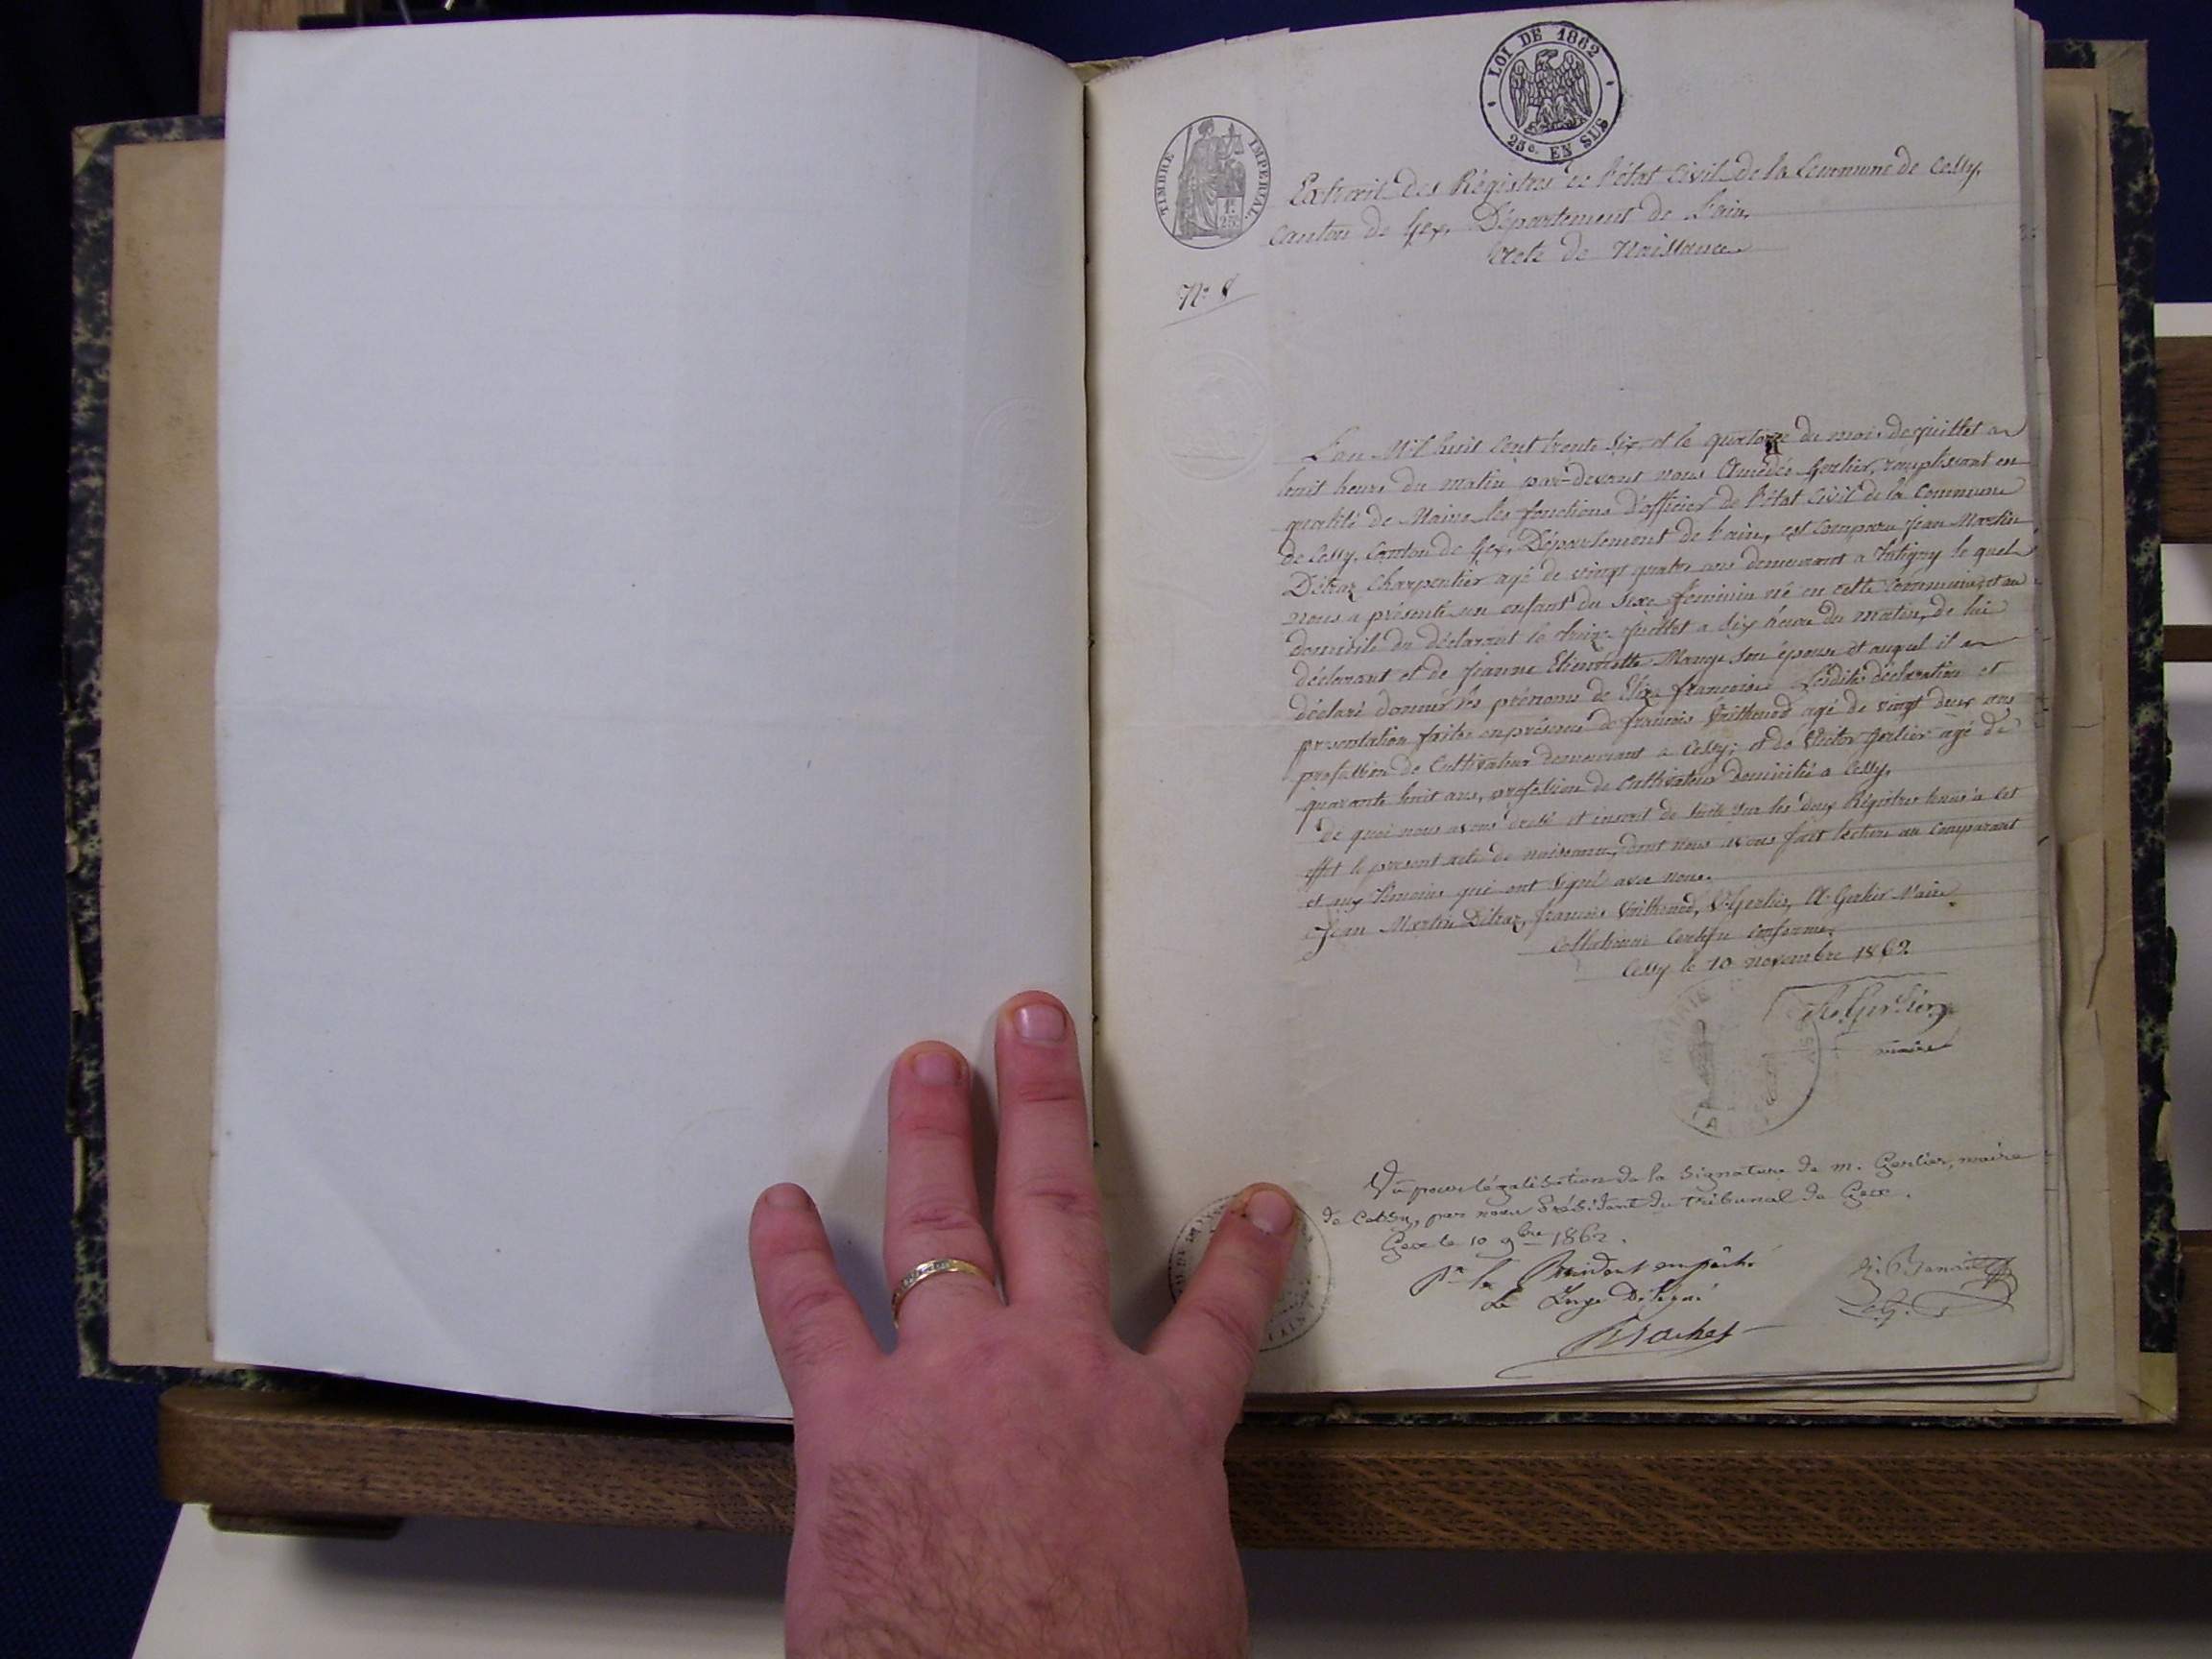 LOI DE 1862
25c. EN SUS
TIMBRE IMPERIAL.
1f.
25c.
Extrait des Régistres de l'état Civil de la Commune de Cessy,
Canton de Gex, Département de l'ain,
Acte de Naissance
N° 8
L'an Mil huit Cent trente Six, et le quatorze du mois de juillet a
huit heure du matin par-devant nous Amédée Gerlier, remplissant en
qualité de Maire les fonctions d'officier de l'état Civil de la Commune
de Cessy, Canton de Gex, Département de l'ain, est Comparu Jean Martin
Détraz Charpentier agé de vingt quatre ans demeurant a le quel
nous a présenté un enfant du Sexe feminin né en cette Commune et au
domicile du déclarant le treize juillet a dix heure du matin, de lui
déclarant et de Jeanne Etiennette Mange son épouse et auquel il a
déclaré donner les prénoms de Eliza françoise Lesdites déclaration et
presentation faites en présence de françois agé de vingt deux ans
profession de Cultivateur demeurant a Cessy; et de Victor Gerlier agé de
quarante huit ans, profession de Cultivateur Domicilié a Cessy,
de quoi nous avons dressé et inscrit de suite sur les deux Régistres tenus a cet
effet le present acte de naissance, dont nous avons fait lecture au Comparant
et aux Témoins qui ont signé avec nous.
Jean Martin Détraz, françois V. Gerlier, A. Gerlier Maire.
Collationné Certifié conforme,
Cessy le 10 novembre 1862
A. Gerlier
maire
MAIRIE
Vu pour légalisation de la signature de m. Gerlier, maire
de Cessy, par nous Président du tribunal de Gex.
Gex le 10 9bre 1862.
Pr le Président empêché
Le Juge Délégué